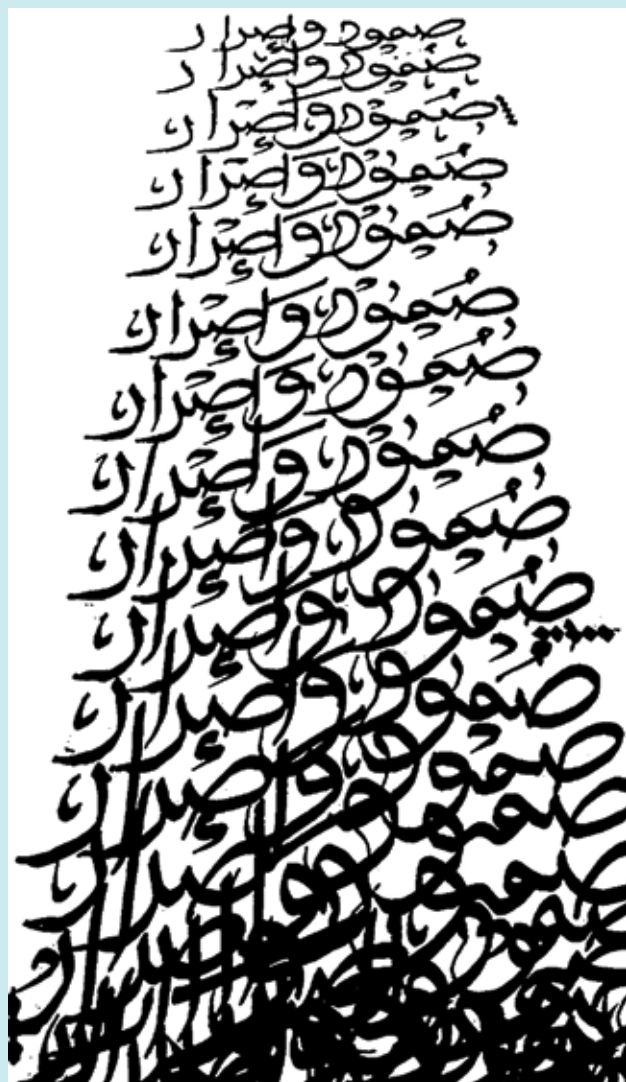 صمود وإصرار
صمود وإصرار
صمود وإصرار
صمود وإصرار
صمود وإصرار
صمود وإصرار
صمود وإصرار
صمود وإصرار
صمود وإصرار
صمود وإصرار
صمود وإصرار
صمود وإصرار
صمود وإصرار